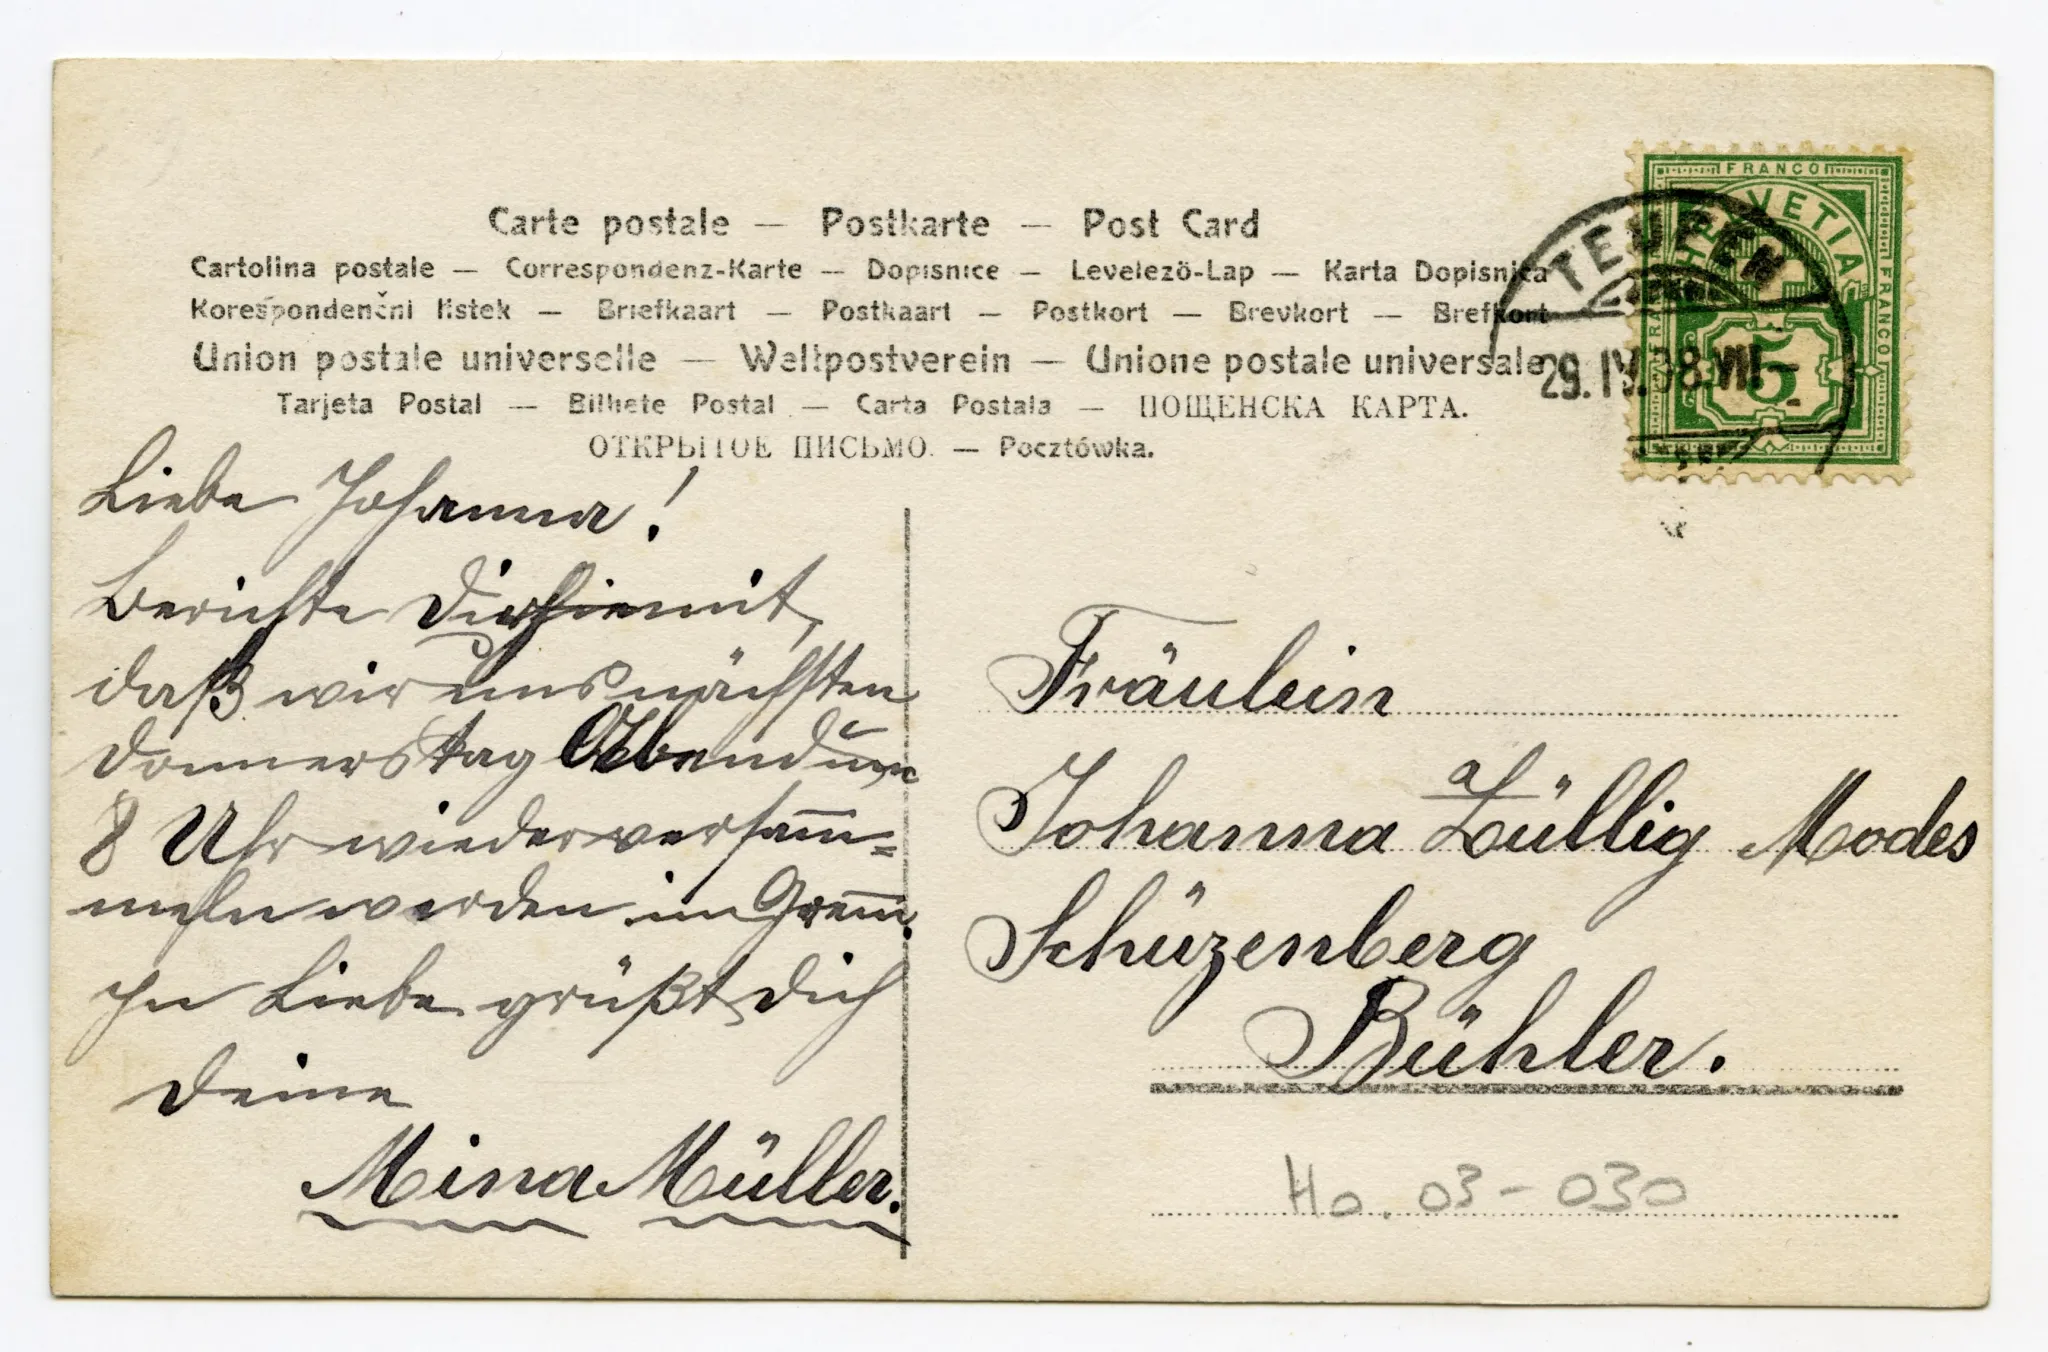 Carte postale — Postkarte — Post Card
Cartolina postale — Correspondenz-Karte — Dopisnice — Levelezö-Lap — Karta Dopisnica
Korespondenční listek — Briefkaart — Postkaart — Postkort — Brevkort — Brefkort
Union postale universelle — Weltpostverein — Unione postale universale
Tarjeta Postal — Bilhete Postal — Carta Postala — ПОЩЕНСКА КАРТА.
ОТКРЫТОЕ ПИСЬМО. — Pocztówka.
FRANCO
HELVETIA
FRANCO
FRANCO
5
TEUFEN
29. IV. 08. VII-
Liebe Johanna!
Berichte Dir hiemit,
daß wir uns nächsten
Donnerstag Abend um
8 Uhr wieder versam̅=
meln werden im
In Liebe grüßt Dich
Deine
Mina Müller.
Fräulein
Johanna Züllig Modes
Schüzenberg
Bühler.
Ho. 03-030